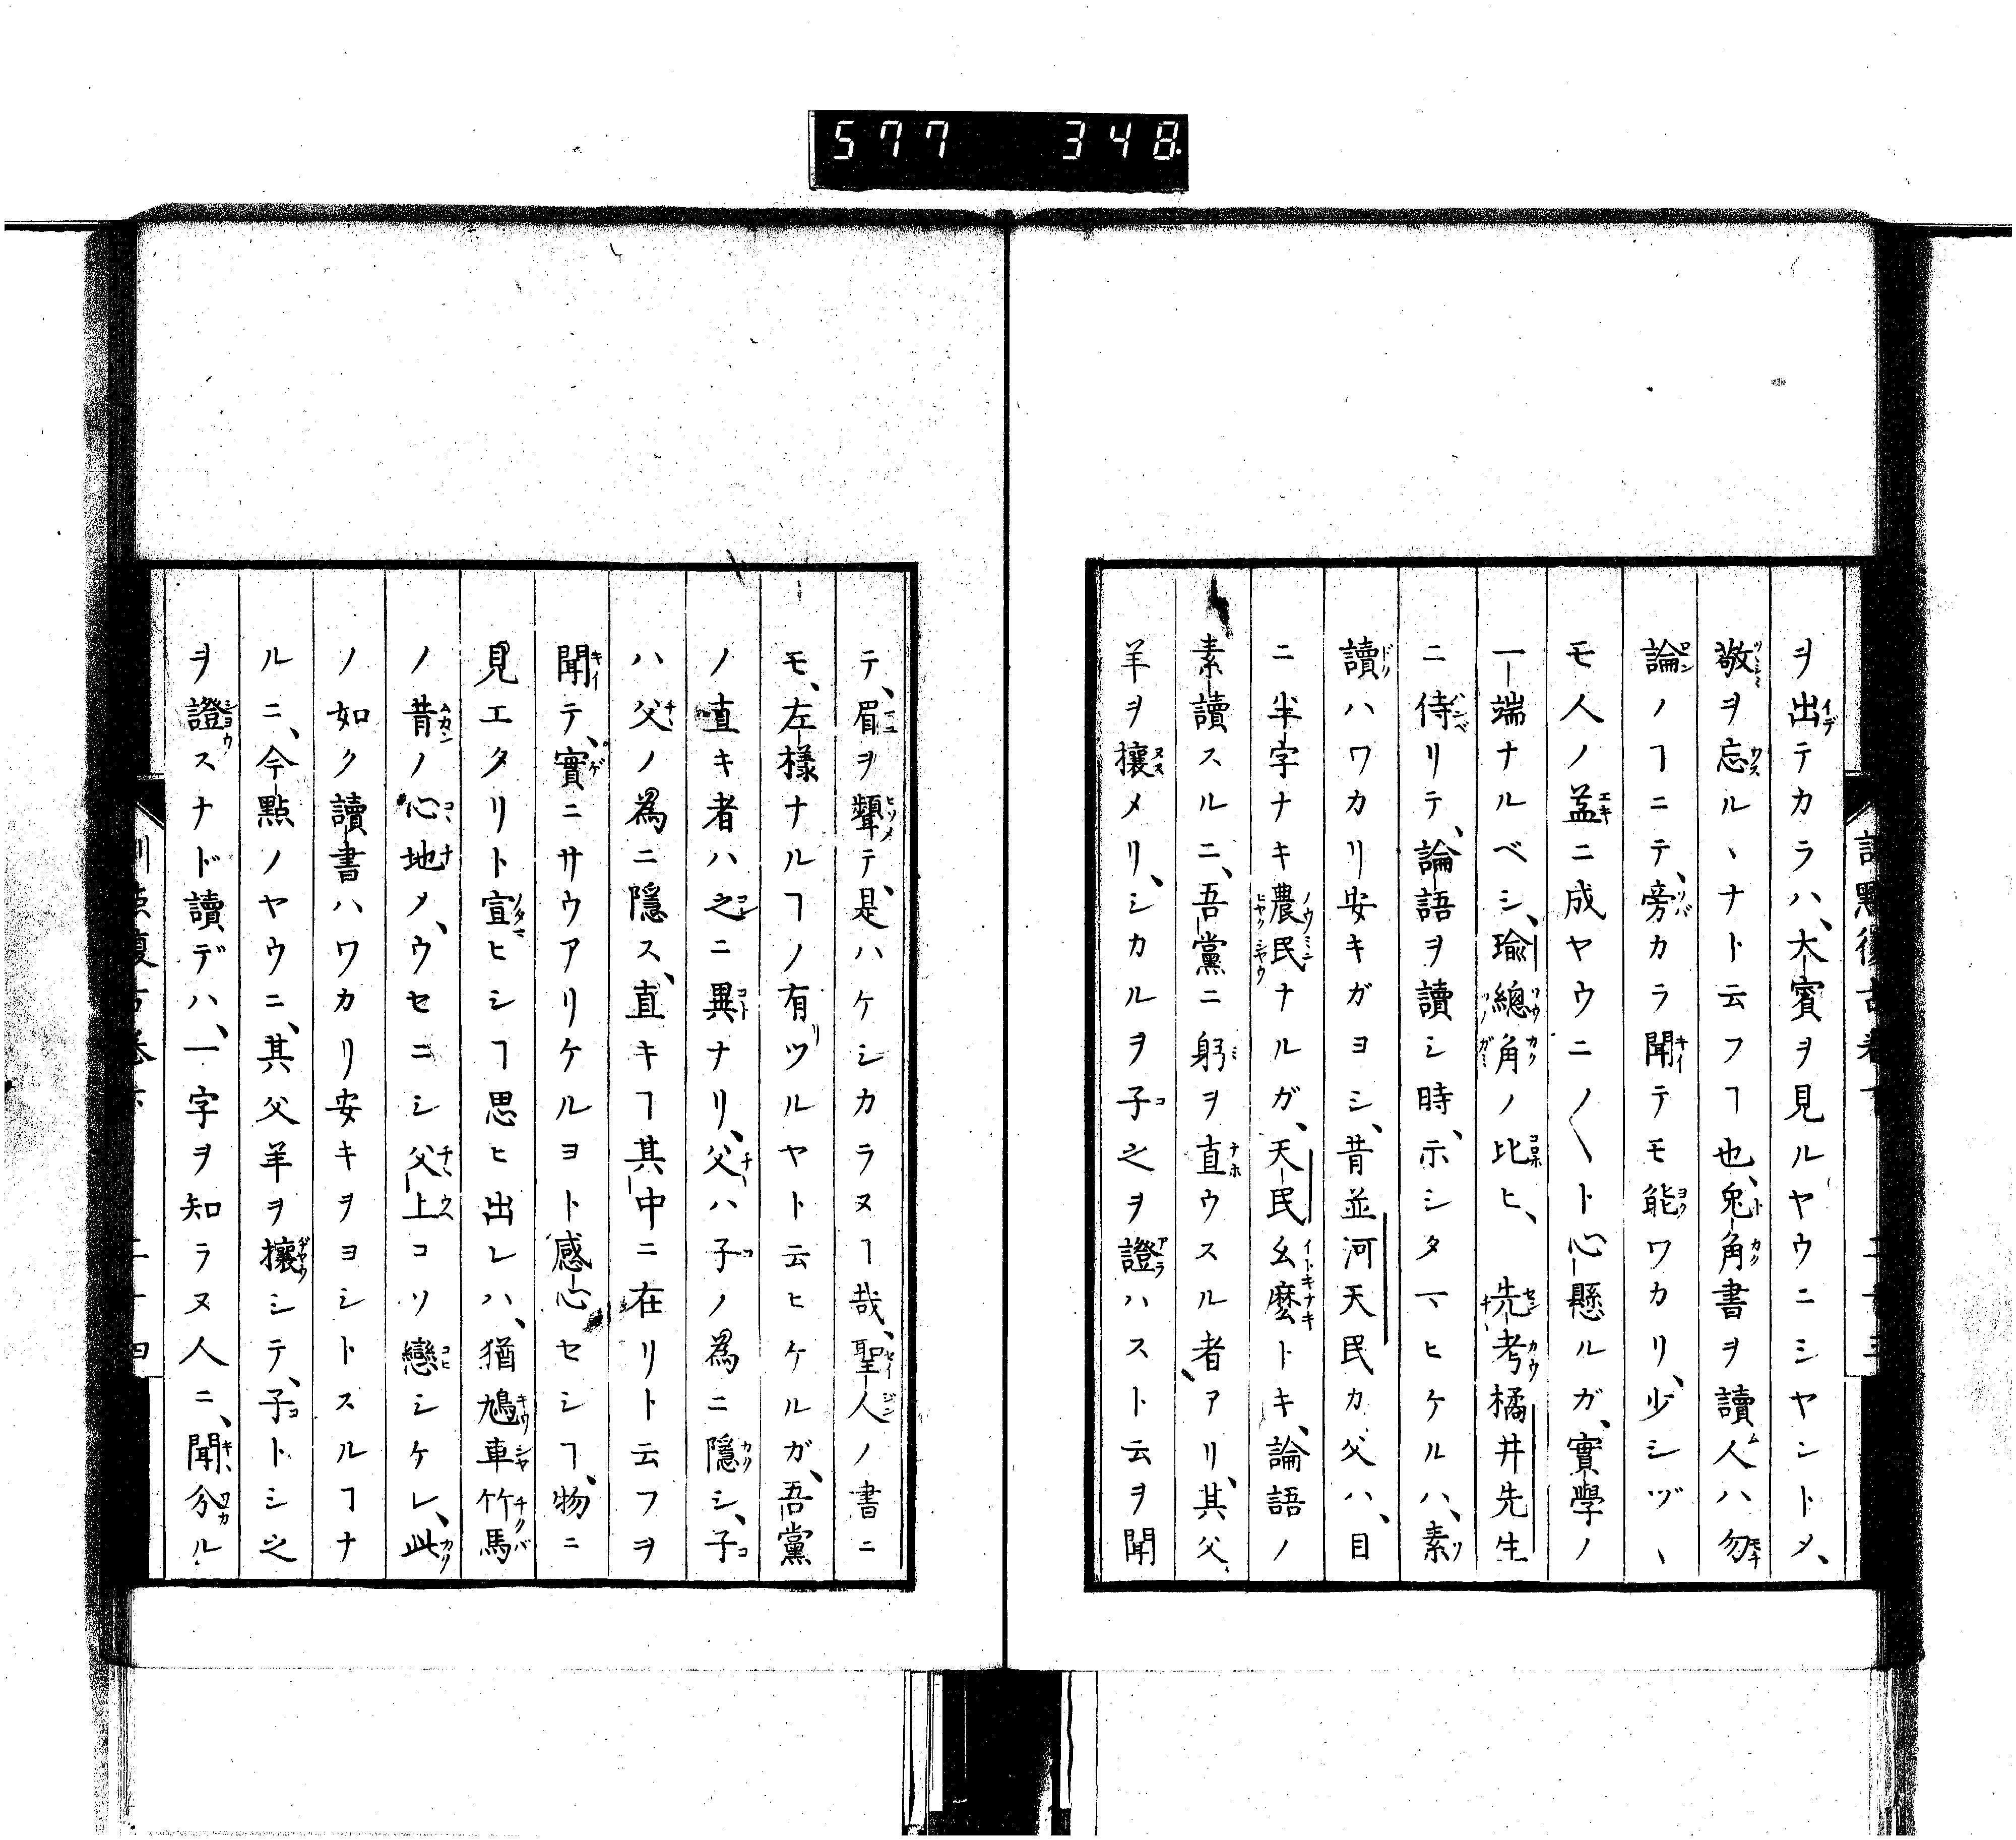 577 348
ヲ出テカラハ、大賓ヲ見ルヤウニシヤントメ、
敬ヲ忘ルヽナト云フヿ也、兎角書ヲ讀人ハ勿
論ノヿニテ、旁カラ聞テモ能ワカリ、少シヅヽ
モ人ノ益ニ成ヤウニ〳〵ト心懸ルガ、實學ノ
一端ナルベシ、瑜總角ノ比ヒ、先考橘井先生
ニ侍リテ、論語ヲ讀シ時、示シタマヒケルハ、素
讀ハワカリ安キガヨシ、昔並河天民カ父ハ、目
ニ半字ナキ農民ナルガ、天民幺麼トキ、論語ノ
素讀スルニ、吾黨ニ躬ヲ直ウスル者アリ、其父、
羊ヲ攘メリ、シカルヲ子之ヲ證ハスト云ヲ聞
テ、眉ヲ顰テ、是ハケシカラヌヿ哉、聖人ノ書ニ
モ、左樣ナルヿノ有ツルヤト云ヒケルガ、吾黨
ノ直キ者ハ之ニ異ナリ、父ハ子ノ爲ニ隱シ、子
ハ父ノ爲ニ隱ス、直キヿ其中ニ在リト云フヲ
聞テ、實ニサウアリケルヨト感心セシヿ、物ニ
見エタリト宣ヒシヿ思ヒ出レハ、猶鳩車竹馬
ノ昔ノ心地メ、ウセニシ父上コソ戀シケレ、此
ノ如ク讀書ハワカリ安キヲヨシトスルヿナ
ルニ、今點ノヤウニ、其父羊ヲ攘シテ、子トシ之
ヲ證スナド讀デハ、一字ヲ知ラヌ人ニ、聞分ル